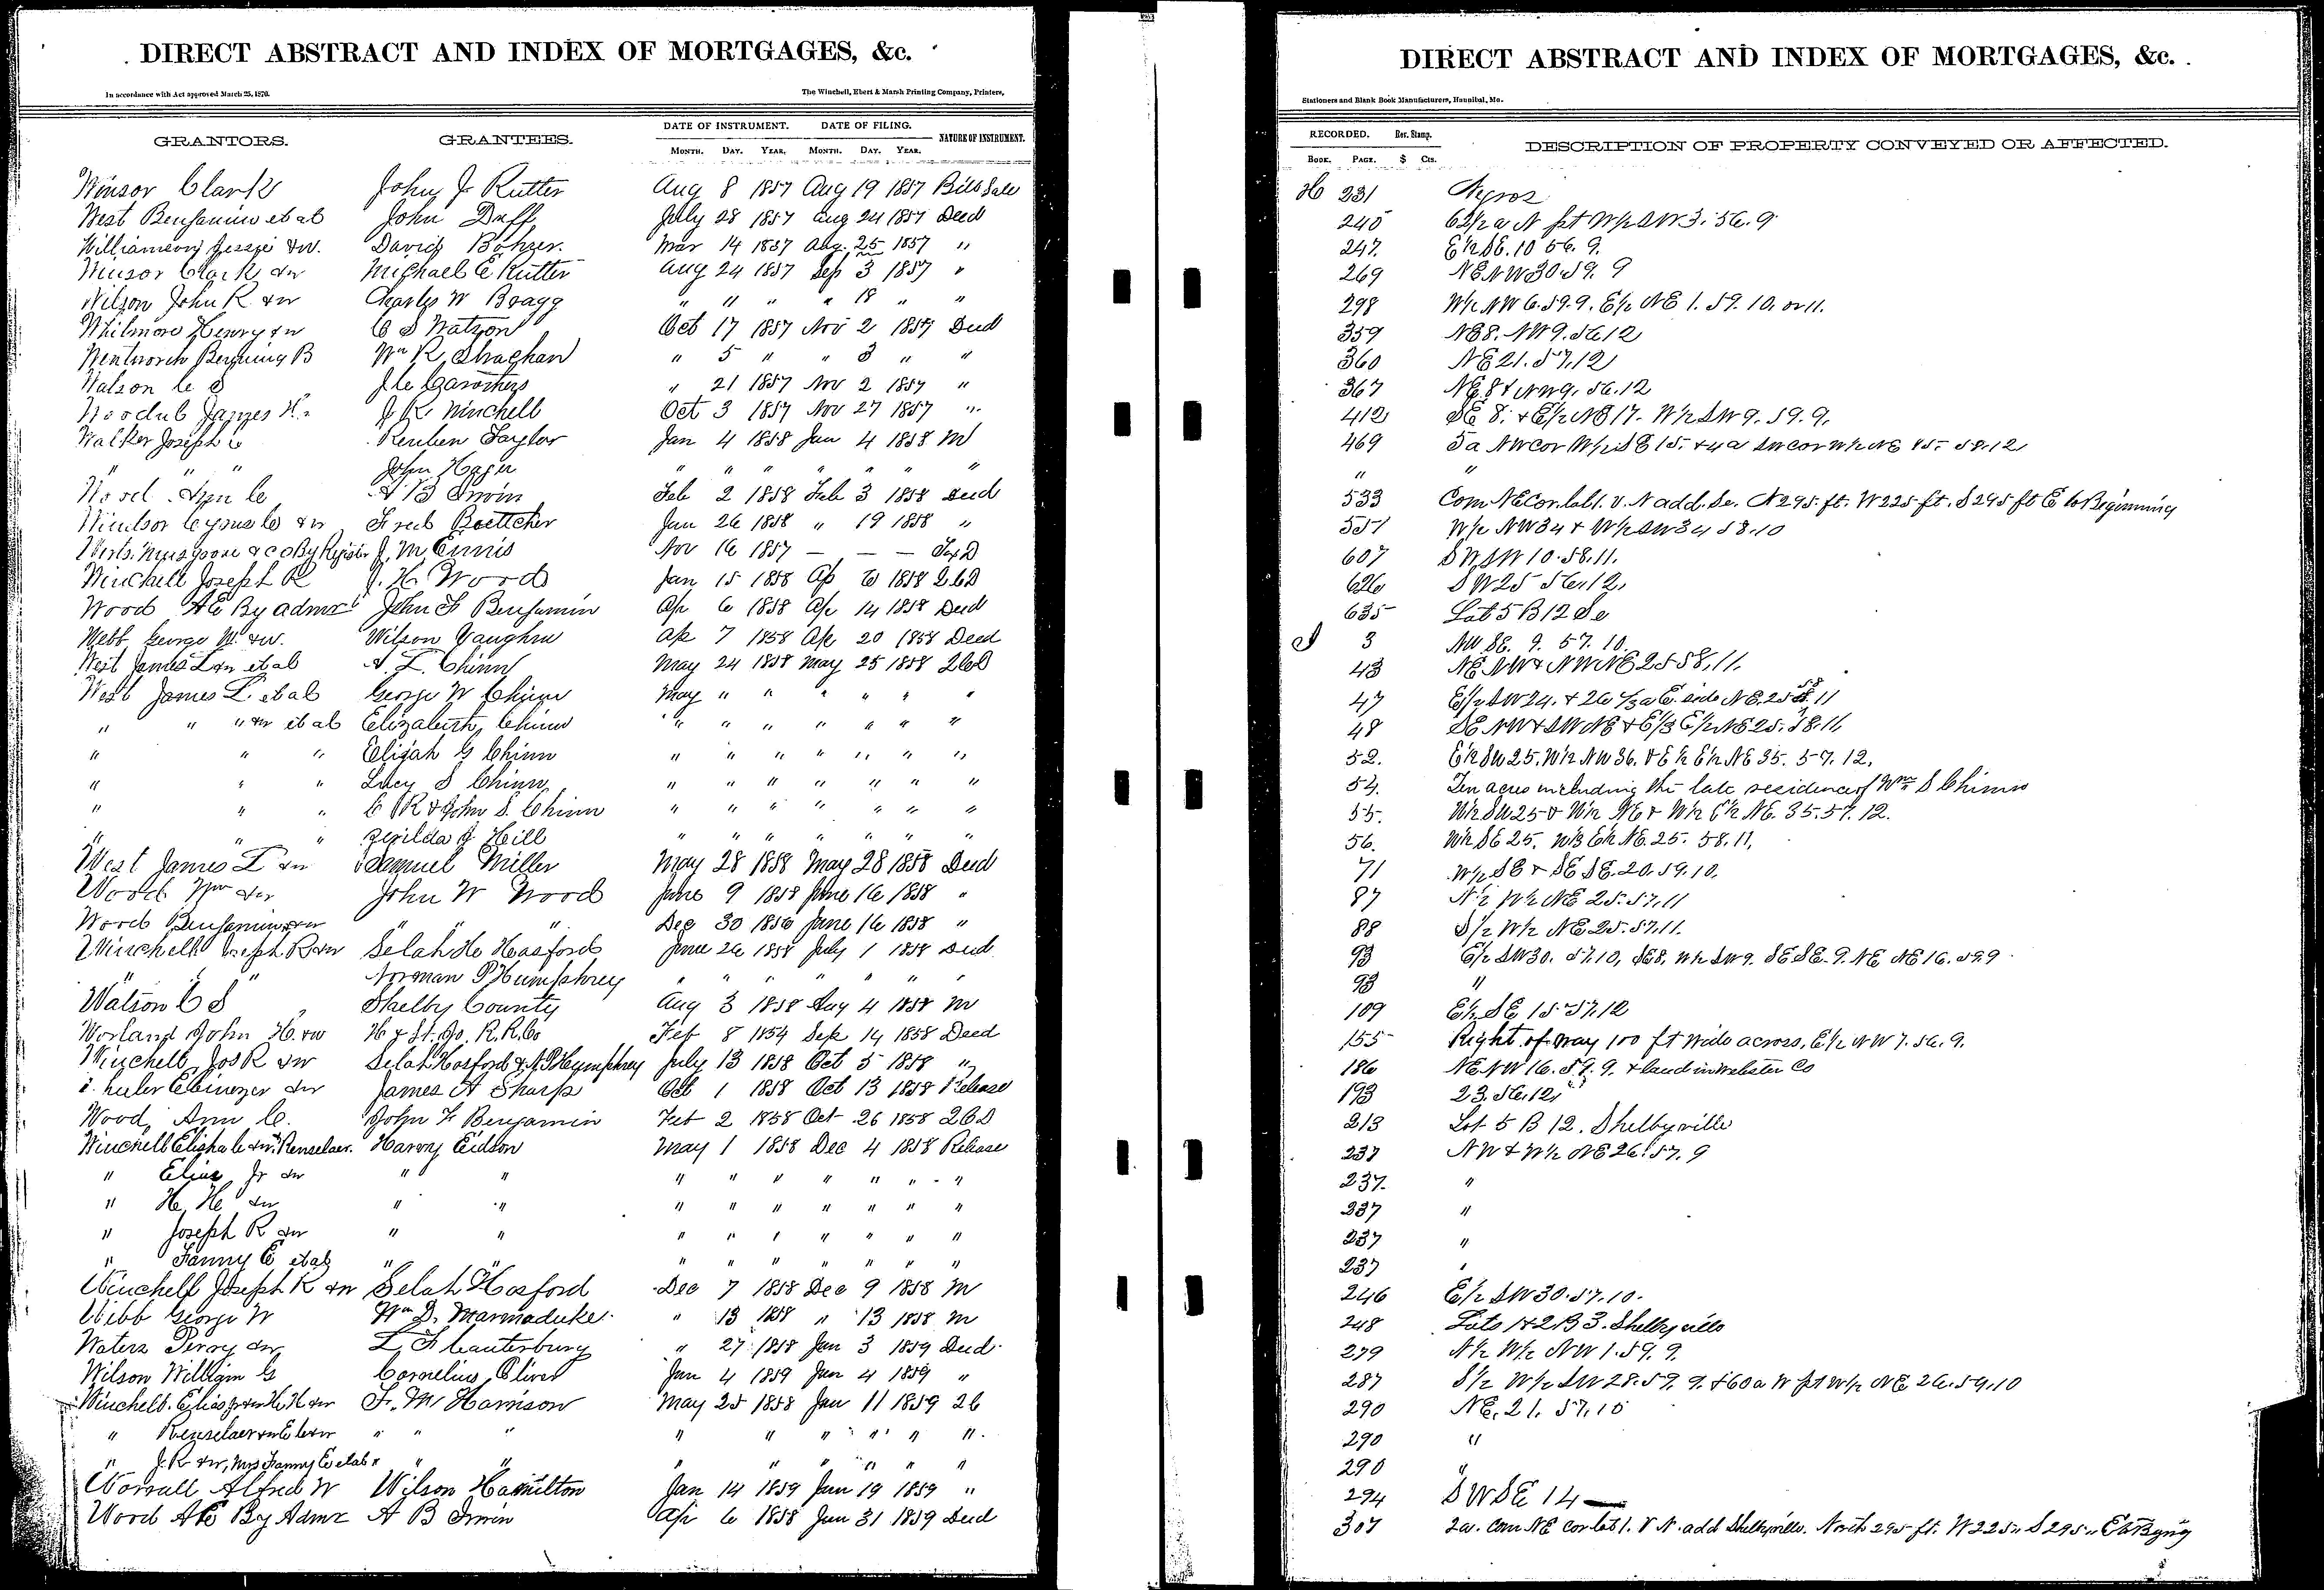 DIRECT ABSTRACT AND INDEX OF MORTGAGES, &c.
In accordance with Act approved March 25, 1870.
The Winchell, Ebert & Marsh Printing Company, Printers,
GRANTORS. GRANTEES. DATE OF INSTRUMENT. DATE OF FILING. NATURE OF INSTRUMENT.
MONTH. DAY. YEAR. MONTH. DAY. YEAR.
Winsor Clark John J Rutter Aug 8 1857 Aug 19 1857 Bill Sale
West Benjamin et al John Duff July 28 1857 Aug 24 1857 Deed
Williamson Jesse &w. David Bohrer. Mar 14 1857 Aug. 25 1857 "
Winsor Clark &w Michael E Rutter Aug 24 1857 Sep 3 1857 "
Wilson John R &w Charles W Bragg " 11 " " 18 " "
Whitmore Henry &w C S Watson Oct 17 1857 Nov 2 1857 Deed
Wentworth B Wm R Strachan " 5 " " 3 " "
Watson C S J C Carothers " 21 1857 Nov 2 1857 "
James H. J. R. Winchell Oct 3 1857 Nov 27 1857 "
Walker Joseph C Reuben Taylor Jan 4 1858 Jan 4 1858 M
" " John Hager " " " " " " "
Wood Ann C A B Irwin Feb 2 1858 Feb 3 1858 Deed
Windsor Cyrus C &w Fred Boettcher Jan 26 1858 " 19 1858 "
Werts, Musgrove & Co By Register J. M. Ennis Nov 16 1857 — — — Tax D
Winchell Joseph R J. H. Wood Jan 15 1858 Ap 6 1858 2 C D
Wood A C By admr John F Benjamin Apr 6 1858 Apr 14 1858 Deed
Webb George W. &w. Wilson Vaughn Apr 7 1858 Apr 20 1858 Deed
West James L &w et al A. L. Chinn May 24 1858 May 25 1858 2 C D
West James L. et al George W Chinn May " " " " " "
" " " &w et al Elizabeth Chinn " " " " " " "
" " " Elijah G Chinn " " " " " " "
" " " Lucy S Chinn " " " " " " "
" " " C R & John S. Chinn " " " " " " "
" " " Zerilda J. Hill " " " " " " "
West James L &w Samuel Miller May 28 1858 May 28 1858 Deed
Wood Wm &w John W Wood June 9 1858 June 16 1858 "
Wood Benjamin &w " " " Dec 30 1856 June 16 1858 "
Winchell Joseph R &w Selah H Hosford June 26 1858 July 1 1858 Deed
" " Norman P Humphrey " " " " " "
Watson C S Shelby County Aug 3 1858 Aug 4 1858 M
Worland John H. &w H & St. Jo. R. R. Co Feb 8 1854 Sep 14 1858 Deed
Winchell Jos R &w Selah Hosford & N. P. Humphrey July 13 1858 Oct 5 1858 "
Ebenezer &w James A Sharp Oct 1 1858 Oct 13 1858 Release
Wood, Ann C. John F Benjamin Feb 2 1858 Oct 26 1858 2 C D
Winchell Elisha C &w. Renselaer. Harvy Eidson May 1 1858 Dec 4 1858 Release
" Elias Jr &w " " " " " " " " "
" H. H. &w " " " " " " " " "
" Joseph R &w " " " " " " " " "
" Fanny E et al " " " " " " " "
Winchell Joseph R &w Selah Hosford Dec 7 1858 Dec 9 1858 M
Webb George W Wm D. Marmaduke " 13 1858 " 13 1858 M
Waters Percy &w L. F Canterbury " 27 1858 Jan 3 1859 Deed
Wilson William G Cornelius Oliver Jan 4 1859 Jan 4 1859 "
Winchell. Elias Jr &w H. H &w F. M Harrison May 25 1858 Jan 11 1859 2 C
" Renselaer &w E C &w " " " " " " " " "
" J. R &w, Mrs Fanny E et al " " " " " " " "
Worrall Alfred W Wilson Hamilton Jan 14 1859 Jan 19 1859 "
Wood A C By Admr A B Irwin Apr 6 1858 Jan 31 1859 Deed
DIRECT ABSTRACT AND INDEX OF MORTGAGES, &c.
Stationers and Blank Book Manufacturers, Hannibal, Mo.
RECORDED. Rev. Stamp. DESCRIPTION OF PROPERTY CONVEYED OR AFFECTED.
BOOK. PAGE. $ Cts.
H 231 Negros
240 62½ a N pt W½ SW 3. 56. 9
247. E½ SE. 10 56. 9.
269 NE NW 30. 59. 9
298 W½ NW 6. 59. 9. E½ NE 1. 59. 10. or 11.
359 NE 8. NW 9. 56 12
360 NE 21. 57. 12
367 NE 8 & NW 9. 56. 12
412 SE 8. & E½ NE 17. W½ SW 9. 59. 9.
469 5 a NW cor W½ SE 15. & 4 a SW cor W½ NE 15. 58. 12
" "
533 Com NE Cor. lot 1. V. N add. Se. N 295. ft. W 225 ft. S 295 ft E to Beginning
551 W½ NW 34 & W½ SW 34 58. 10
607 SW SW 10. 58. 11.
626 SW 25 56. 12,
635 Lot 5 B 12 Se
I 3 NW SE. 9. 57. 10.
43 NE NW & NW NE 25 58, 11.
47 E½ SW 24. & 26⅔ a E. side NE. 25. 58. 11
48 SE NW & SW NE & E⅓ E½ NE 25. 58. 11,
52. E½ SW 25. W½ NW 36. & E½ E½ NE 35. 57. 12.
54. Ten acres including the late residence of Wm S Chinn
55. W½ SW 25 & W½ NE & W½ E½ NE. 35. 57. 12.
56. W½ SE 25. W⅓ E½ NE. 25. 58. 11,
71 W½ SE & SE SE. 20. 59. 10.
87 N½ W½ NE 25. 57. 11
88 S½ W½ NE 25. 57. 11.
93 E½ SW 30. 57. 10, SE 8, W½ SW 9. SE SE. 9. NE NE 16. 59. 9
93 "
109 E½ SE 15 57. 12
155 Right of way 100 ft wide across, E½ NW 7. 56. 9.
186 NE NW 16. 59. 9. & land in Webster Co
193 23. 56. 12,
213 Lot 5 B 12. Shelbyville
237 NW & W½ NE 26. 57. 9
237. "
237 "
237 "
237 "
246 E½ SW 30. 57. 10.
248 Lots 1 & 2 B 3. Shelbyville
279 N½ W½ NW 1. 59. 9.
287 S½ W½ SW 28. 59. 9. & 60 a W pt W½ NE 26. 59. 10
290 NE. 21. 57. 10
290 "
290 "
294 SW SE 14 —
307 2 a. Com NE cor lot 1. V N. add Shelbyville. North 295 ft. W 225 " S 295 " E to Bgng